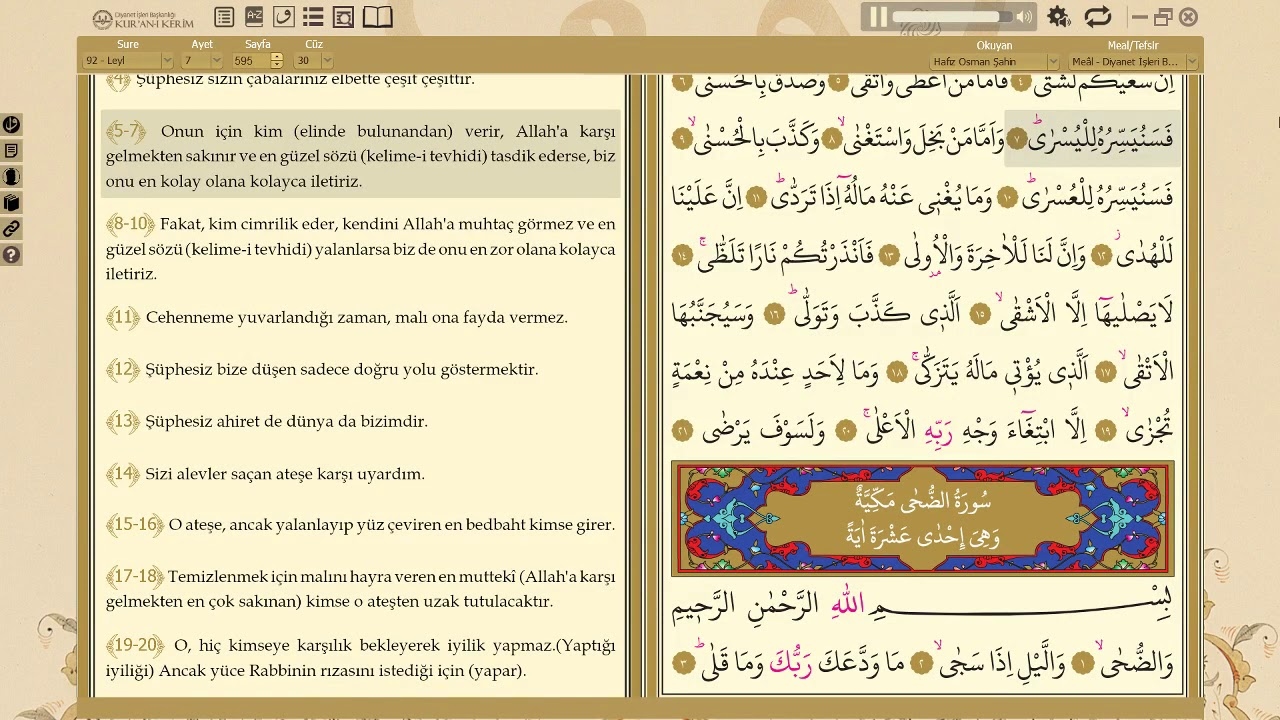 Diyanet İşleri Başkanlığı
KUR'AN-I KERİM
Sure Ayet Sayfa Cüz Okuyan Meal/Tefsir
92 - Leyl 7 595 30 Hafız Osman Şahin Meâl - Diyanet İşleri B...
﴾4﴿ Şüphesiz sizin çabalarınız elbette çeşit çeşittir.
﴾5-7﴿ Onun için kim (elinde bulunandan) verir, Allah'a karşı
gelmekten sakınır ve en güzel sözü (kelime-i tevhidi) tasdik ederse, biz
onu en kolay olana kolayca iletiriz.
﴾8-10﴿ Fakat, kim cimrilik eder, kendini Allah'a muhtaç görmez ve en
güzel sözü (kelime-i tevhidi) yalanlarsa biz de onu en zor olana kolayca
iletiriz.
﴾11﴿ Cehenneme yuvarlandığı zaman, malı ona fayda vermez.
﴾12﴿ Şüphesiz bize düşen sadece doğru yolu göstermektir.
﴾13﴿ Şüphesiz ahiret de dünya da bizimdir.
﴾14﴿ Sizi alevler saçan ateşe karşı uyardım.
﴾15-16﴿ O ateşe, ancak yalanlayıp yüz çeviren en bedbaht kimse girer.
﴾17-18﴿ Temizlenmek için malını hayra veren en muttekî (Allah'a karşı
gelmekten en çok sakınan) kimse o ateşten uzak tutulacaktır.
﴾19-20﴿ O, hiç kimseye karşılık bekleyerek iyilik yapmaz.(Yaptığı
iyiliği) Ancak yüce Rabbinin rızasını istediği için (yapar).
اِنَّ سَعْيَكُمْ لَشَتّٰى ٤ فَاَمَّا مَنْ اَعْطٰى وَاتَّقٰى ٥ وَصَدَّقَ بِالْحُسْنٰى ٦
فَسَنُيَسِّرُهُ لِلْيُسْرٰى ٧ وَاَمَّا مَنْ بَخِلَ وَاسْتَغْنٰى ٨ وَكَذَّبَ بِالْحُسْنٰى ٩
فَسَنُيَسِّرُهُ لِلْعُسْرٰى ١٠ وَمَا يُغْنٖي عَنْهُ مَالُهُٓ اِذَا تَرَدّٰى ١١ اِنَّ عَلَيْنَا
لَلْهُدٰى ١٢ وَاِنَّ لَنَا لَلْاٰخِرَةَ وَالْاُولٰى ١٣ فَاَنْذَرْتُكُمْ نَارًا تَلَظّٰى ١٤
لَا يَصْلٰيهَٓا اِلَّا الْاَشْقٰى ١٥ اَلَّذٖي كَذَّبَ وَتَوَلّٰى ١٦ وَسَيُجَنَّبُهَا
الْاَتْقٰى ١٧ اَلَّذٖي يُؤْتٖي مَالَهُ يَتَزَكّٰى ١٨ وَمَا لِاَحَدٍ عِنْدَهُ مِنْ نِعْمَةٍ
تُجْزٰى ١٩ اِلَّا ابْتِغَٓاءَ وَجْهِ رَبِّهِ الْاَعْلٰى ٢٠ وَلَسَوْفَ يَرْضٰى ٢١
سُورَةُ الضُّحٰى مَكِّيَّةٌ
وَهِيَ اِحْدٰى عَشْرَةَ اٰيَةً
بِسْمِ اللّٰهِ الرَّحْمٰنِ الرَّحٖيمِ
وَالضُّحٰى ١ وَالَّيْلِ اِذَا سَجٰى ٢ مَا وَدَّعَكَ رَبُّكَ وَمَا قَلٰى ٣